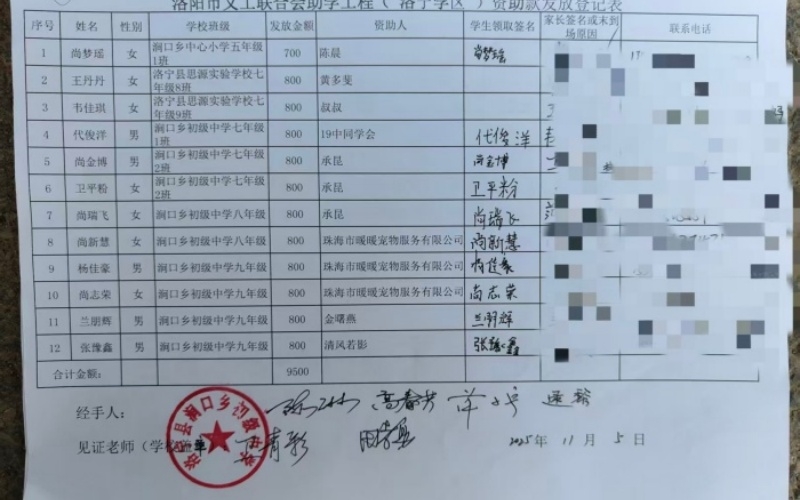 洛阳市义工联合会助学工程（洛宁学区）资助款发放登记表
序号 姓名 性别 学校班级 发放金额 资助人 学生领取签名 家长签名或未到场原因 联系电话
1 尚梦瑶 女 涧口乡中心小学五年级1班 700 陈晨 尚梦瑶
2 王丹丹 女 洛宁县思源实验学校七年级8班 800 黄多斐
3 韦佳琪 女 洛宁县思源实验学校七年级9班 800 叔叔
4 代俊洋 男 涧口乡初级中学七年级1班 800 19中同学会 代俊洋
5 尚金博 男 涧口乡初级中学七年级2班 800 承昆 尚金博
6 卫平粉 女 涧口乡初级中学七年级2班 800 承昆 卫平粉
7 尚瑞飞 女 涧口乡初级中学八年级 800 承昆 尚瑞飞
8 尚新慧 女 涧口乡初级中学八年级 800 珠海市暖暖宠物服务有限公司 尚新慧
9 杨佳豪 男 涧口乡初级中学九年级 800 珠海市暖暖宠物服务有限公司 杨佳豪
10 尚志荣 女 涧口乡初级中学九年级 800 珠海市暖暖宠物服务有限公司 尚志荣
11 兰朋辉 男 涧口乡初级中学九年级 800 金曙燕 兰朋辉
12 张豫鑫 男 涧口乡初级中学九年级 800 清风若影 张豫鑫
合计金额： 9500
经手人：
见证老师（学校盖章
2025年 11月 5日